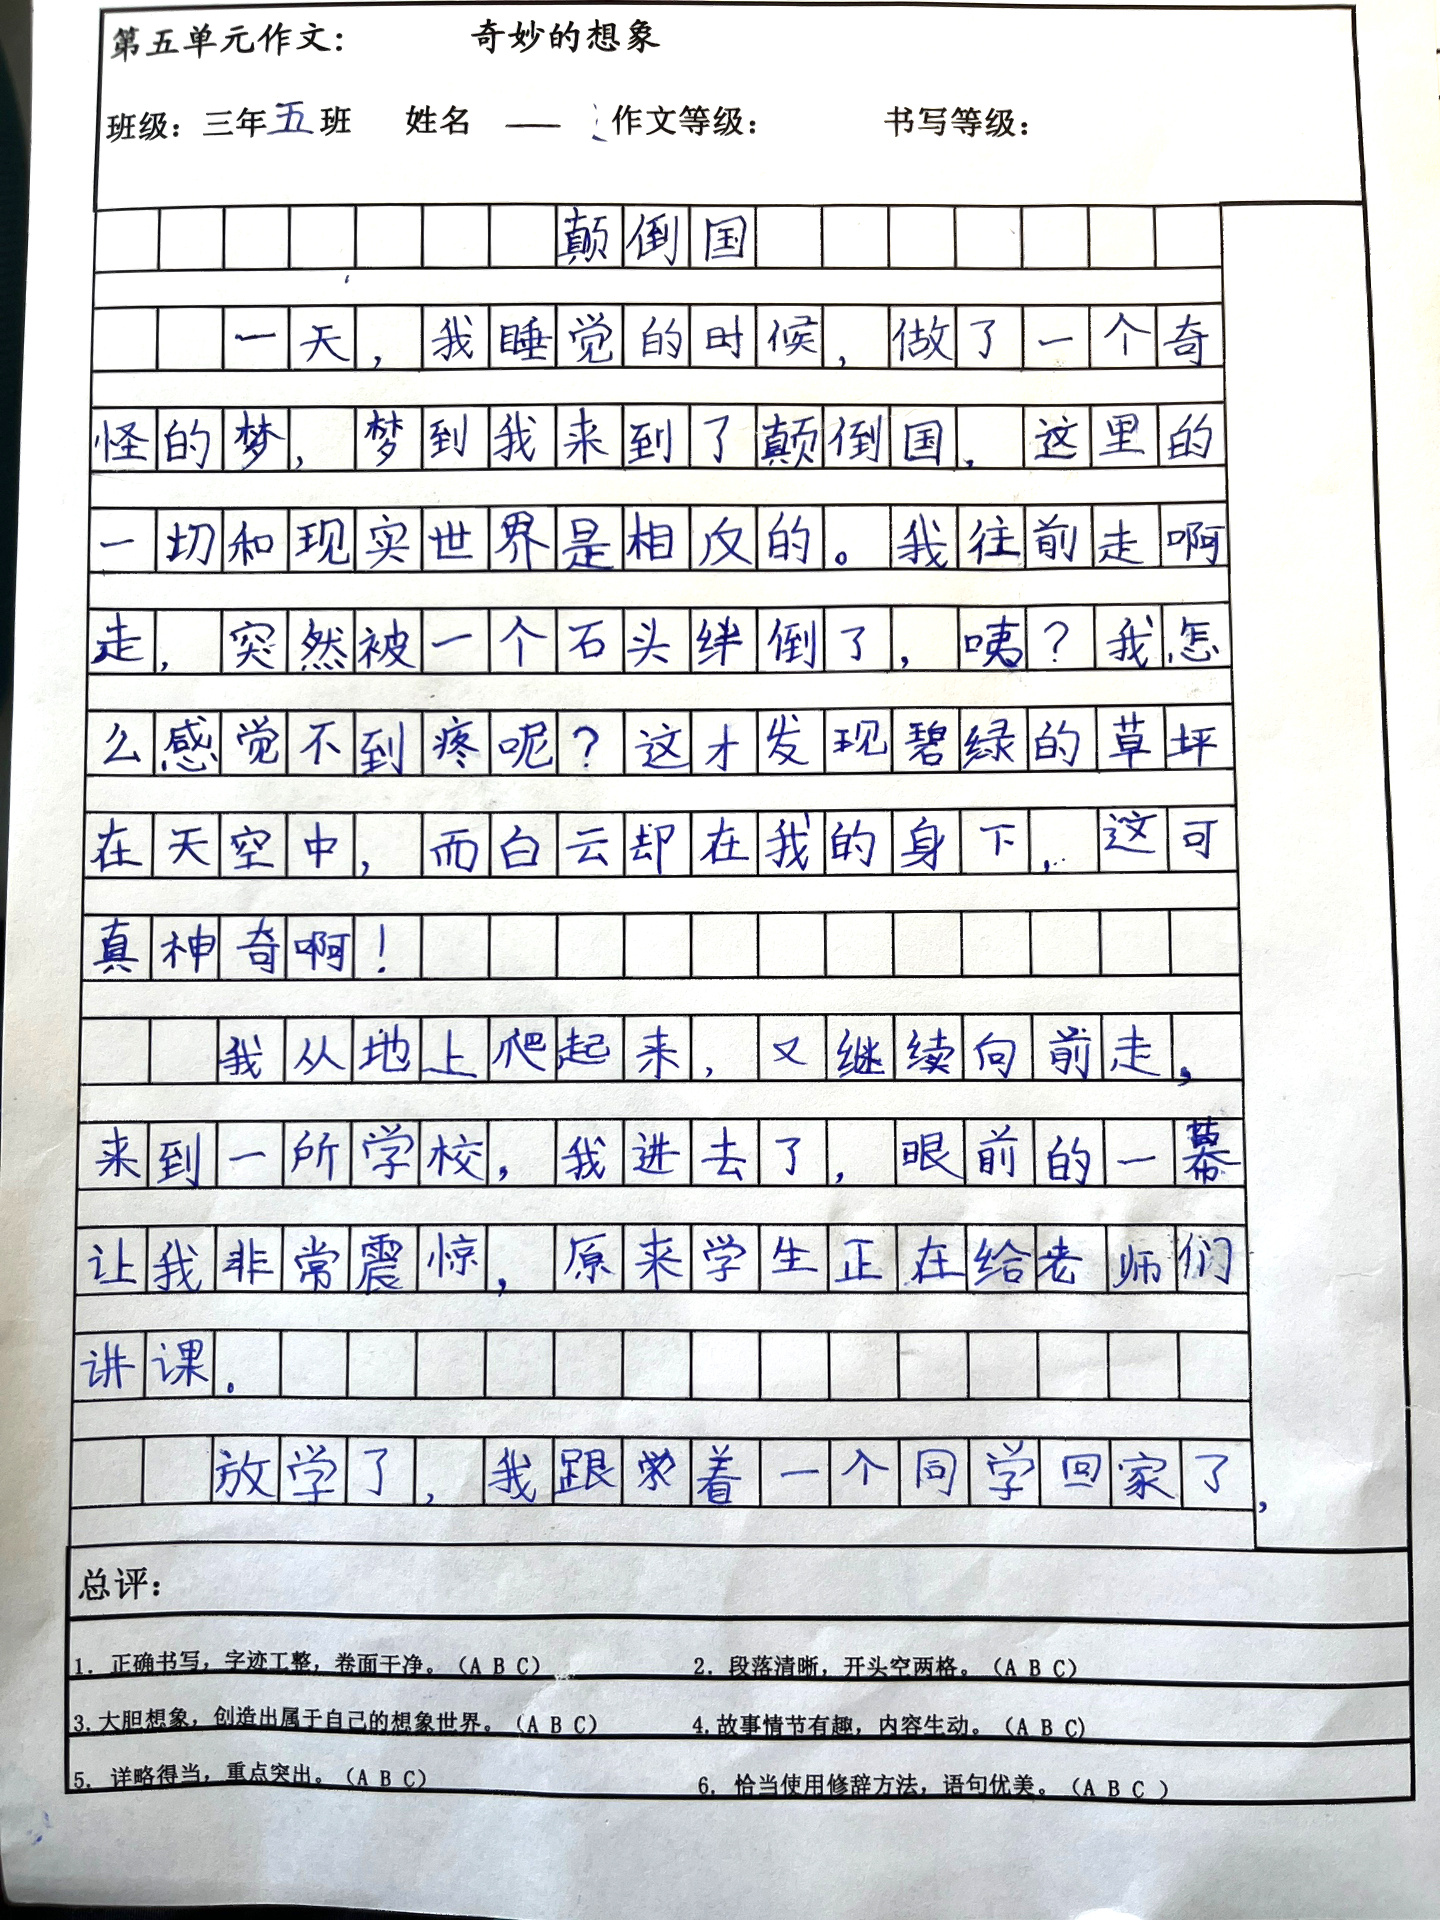 第五单元作文： 奇妙的想象
班级：三年五班 姓名 —— 作文等级： 书写等级：
颠倒国
一天，我睡觉的时候，做了一个奇
怪的梦，梦到我来到了颠倒国，这里的
一切和现实世界是相反的。我往前走啊
走，突然被一个石头绊倒了，咦？我怎
么感觉不到疼呢？这才发现碧绿的草坪
在天空中，而白云却在我的身下，这可
真神奇啊！
我从地上爬起来，又继续向前走，
来到一所学校，我进去了，眼前的一幕
让我非常震惊，原来学生正在给老师们
讲课。
放学了，我跟着一个同学回家了，
总评：
1. 正确书写，字迹工整，卷面干净。（A B C） 2. 段落清晰，开头空两格。（A B C）
3. 大胆想象，创造出属于自己的想象世界。（A B C） 4. 故事情节有趣，内容生动。（A B C）
5. 详略得当，重点突出。（A B C） 6. 恰当使用修辞方法，语句优美。（A B C ）